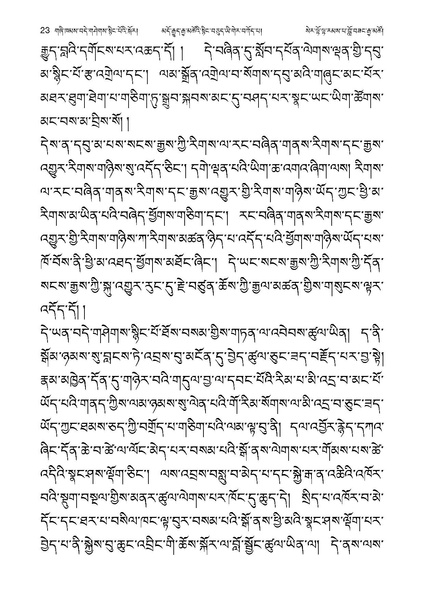 23 གཞི་ཁམས་བདེ་གཤེགས་སྙིང་པོའི་སྐོར། མདོ་རྒྱུད་རྒྱ་མཚོའི་སྙིང་བཅུད་ཡི་གེར་བཀོད་པ། སེར་ལྷོ་ལྷ་རམས་པ་བློ་བཟང་རྒྱ་མཚོ།
རྒྱུད་བླའི་དགོངས་པར་འཆད་དོ། ། དེ་བཞིན་དུ་སློབ་དཔོན་ལེགས་ལྡན་གྱི་དབུ་
མ་སྙིང་པོ་རྩ་འགྲེལ་དང་། ལམ་སྒྲོན་འགྲེལ་བ་སོགས་དབུ་མའི་གཞུང་མང་པོར་
མཐར་ཐུག་ཐེག་པ་གཅིག་ཏུ་སྒྲུབ་སྐབས་མང་དུ་བཤད་པར་སྣང་ཡང་ཡིག་ཚོགས་
མང་བས་མ་བྲིས་སོ། །
དེས་ན་དབུ་མ་པས་སངས་རྒྱས་ཀྱི་རིགས་ལ་རང་བཞིན་གནས་རིགས་དང་རྒྱས་
འགྱུར་རིགས་གཉིས་སུ་འདོད་ཅིང་། དགེ་ལྡན་པའི་ཡིག་ཆ་འགའ་ཞིག་ལས། རིགས་
ལ་རང་བཞིན་གནས་རིགས་དང་རྒྱས་འགྱུར་གྱི་རིགས་གཉིས་ཡོད་ཀྱང་ཕྱི་མ་
རིགས་མ་ཡིན་པའི་བཞེད་ཕྱོགས་གཅིག་དང་། རང་བཞིན་གནས་རིགས་དང་རྒྱས་
འགྱུར་གྱི་རིགས་གཉིས་ཀ་རིགས་མཚན་ཉིད་པ་འདོད་པའི་ཕྱོགས་གཉིས་ཡོད་པས་
ཁོ་བོས་ནི་ཕྱི་མ་འཐད་ཕྱོགས་མཐོང་ཞིང་། དེ་ཡང་སངས་རྒྱས་ཀྱི་རིགས་ཀྱི་དོན་
སངས་རྒྱས་ཀྱི་སྐུ་འགྱུར་རུང་དུ་རྗེ་བཙུན་ཆོས་ཀྱི་རྒྱལ་མཚན་གྱིས་གསུངས་ལྟར་
འདོད་དོ། །
དེ་ཡན་བདེ་གཤེགས་སྙིང་པོ་ཐོས་བསམ་གྱིས་གཏན་ལ་འབེབས་ཚུལ་ཡིན། ད་ནི་
སྒོམ་ཉམས་སུ་བླངས་ཏེ་འབྲས་བུ་མངོན་དུ་བྱེད་ཚུལ་ཅུང་ཟད་བརྗོད་པར་བྱ་སྟེ།
རྣམ་མཁྱེན་དོན་དུ་གཉེར་བའི་གདུལ་བྱ་ལ་དབང་པོའི་རིམ་པ་མི་འདྲ་བ་མང་པོ་
ཡོད་པའི་གནད་ཀྱིས་ལམ་ཉམས་སུ་ལེན་པའི་གོ་རིམ་སོགས་ལ་མི་འདྲ་བ་ཅུང་ཟད་
ཡོད་ཀྱང་ཐམས་ཅད་ཀྱི་བགྲོད་པ་གཅིག་པའི་ལམ་ལྟ་བུ་ནི། དལ་འབྱོར་རྙེད་དཀའ་
ཞིང་དོན་ཆེ་བ་ཚེ་ལ་ལོང་མེད་པར་བསམ་པའི་སྒོ་ནས་ལེགས་པར་གོམས་པས་ཚེ་
འདིའི་སྣང་ཤས་ལྡོག་ཅིང་། ལས་འབྲས་བསླུ་བ་མེད་པ་དང་སྐྱེ་རྒ་ན་འཆིའི་འཁོར་
བའི་སྡུག་བསྔལ་གྱིས་མནར་ཚུལ་ལེགས་པར་ཁོང་དུ་ཆུད་དེ། སྲིད་པ་འཁོར་བ་མེ་
དོང་དང་ཐར་པ་བསིལ་ཁང་ལྟ་བུར་བསམ་པའི་སྒོ་ནས་ཕྱི་མའི་སྣང་ཤས་ལྡོག་པར་
བྱེད་པ་ནི་སྐྱེས་བུ་ཆུང་འབྲིང་གི་ཆོས་སྐོར་ལ་བློ་སྦྱོང་ཚུལ་ཡིན་ལ། དེ་ནས་ལས་